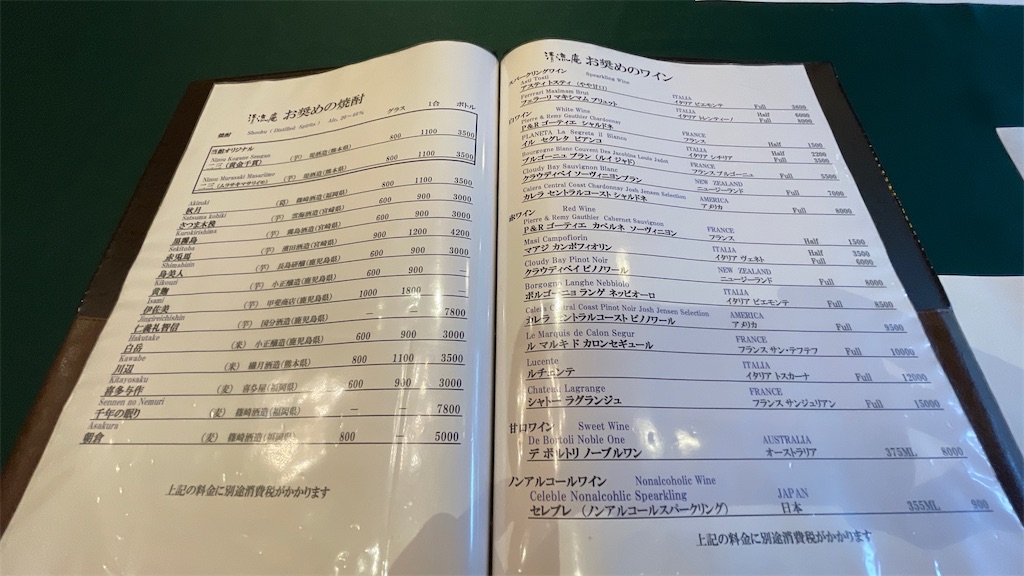 清流庵 お奨めの焼酎
焼酎 Shochu ( Distilled Spirits ) Alc. 20~44% グラス 1合 ボトル
当館オリジナル 800 1100 3500
二三 (黄金千貫) (芋) 堤酒造(熊本県)
Nizou Murasaki Masarimo 800 1100 3500
二三 (ムラサキマサリイモ) (芋) 堤酒造(熊本県)
Akizuki
秋月 (葛) 篠崎酒造(福岡県) 800 1100 3500
Satsuma kobiki
さつま木挽 (芋) 雲海酒造(宮崎県) 600 900 3000
Kurokirishima
黒霧島 (芋) 霧島酒造(宮崎県) 600 900 3000
Sekitoba
赤兎馬 (芋) 濱田酒造(宮崎県) 900 1200 4200
Shimabijin
島美人 (芋) 長島研醸(鹿児島県) 600 900 3000
Kikouri
貴匠 (芋) 小正醸造(鹿児島県) 600 900 —
Isami
伊佐美 (芋) 甲斐商店(鹿児島県) 1000 1800 —
Jingireichishin
仁義礼智信 (芋) 国分酒造(鹿児島県) — — 7800
Hakutake
白岳 (米) 小正醸造(鹿児島県) 600 900 3000
Kawabe
川辺 (米) 繊月酒造(熊本県) 800 1100 3500
Kitayosaku
喜多与作 (麦) 喜多屋(福岡県) 600 900 3000
Sennen no Nemuri
千年の眠り (麦) 篠崎酒造(福岡県) — — 7800
Asakura
朝倉 (麦) 篠崎酒造(福岡県) 800 — 5000
上記の料金に別途消費税がかかります
清流庵 お奨めのワイン
スパークリングワイン Spearkling Wine
Asti Tosti
アスティ トスティ (やや甘口) ITALIA イタリア ピエモンテ Full 5600
Ferrrari Maximam Brut
フェラーリ マキシマム ブリュット ITALIA イタリア トレンティーノ Full 8000
白ワイン White Wine
Pierre & Remy Gauthier Chardonnay
P&R ゴーティエ シャルドネ FRANCE フランス Half 1500
PLANETA La Segreta il Bianco
イル セグレタ ビアンコ ITALIA イタリア シチリア
Bourgogne Blanc Couvent Des Jacobins Louis Jadot
ブルゴーニュ ブラン (ルイ ジャド) FRANCE フランス ブルゴーニュ Full 5500
Cloudy Bay Sauvignon Blanc
クラウディベイ ソーヴィニヨンブラン NEW ZEALAND ニュージーランド Full 7000
Calera Central Coast Chardonnay Josh Jensen Selection
カレラ セントラルコースト シャルドネ AMERICA アメリカ Full 8000
赤ワイン Red Wine
Pierre & Remy Gauthier Cabernet Sauvignon
P&R ゴーティエ カベルネ ソーヴィニヨン FRANCE フランス Half 1500
Masi Campofiorin
マアジ カンポフィオリン ITALIA イタリア ヴェネト Half 3500 Full 6000
Cloudy Bay Pinot Noir
クラウディベイ ピノノワール NEW ZEALAND ニュージーランド Full 8000
Borgogno Langhe Nebbiolo
ボルゴーニョ ランゲ ネッビオーロ ITALIA イタリア ピエモンテ Full 8500
Calera Central Coast Pinot Noir Josh Jensen Selection
カレラ セントラルコースト ピノノワール AMERICA アメリカ Full 9500
Le Marquis de Calon Segur
ル マルキ ド カロンセギュール FRANCE フランス サン・テフテフ Full 10000
Lucente
ルチェンテ ITALIA イタリア トスカーナ Full 12000
Chateau Lagrange
シャトー ラグランジュ FRANCE フランス サンジュリアン Full 15000
甘口ワイン Sweet Wine
De Bortoli Noble One
デ ボルトリ ノーブルワン AUSTRALIA オーストラリア 375ML 8000
ノンアルコールワイン Nonalcoholic Wine
Celeble Nonalcohlic Spearkling
セレブレ (ノンアルコールスパークリング) JAPAN 日本 355ML 900
上記の料金に別途消費税がかかります